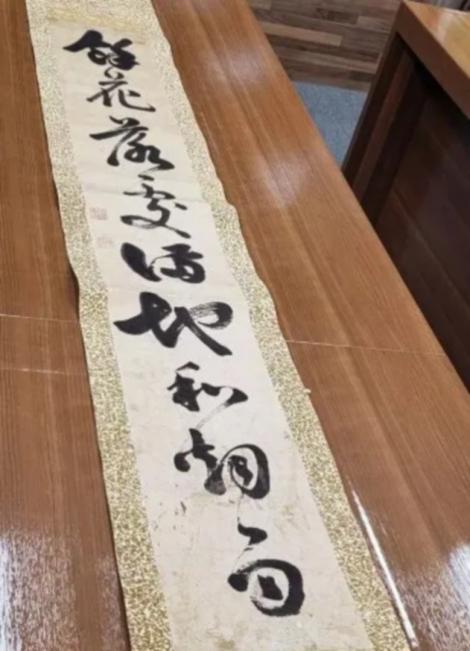 餘花落處滿地和烟雨